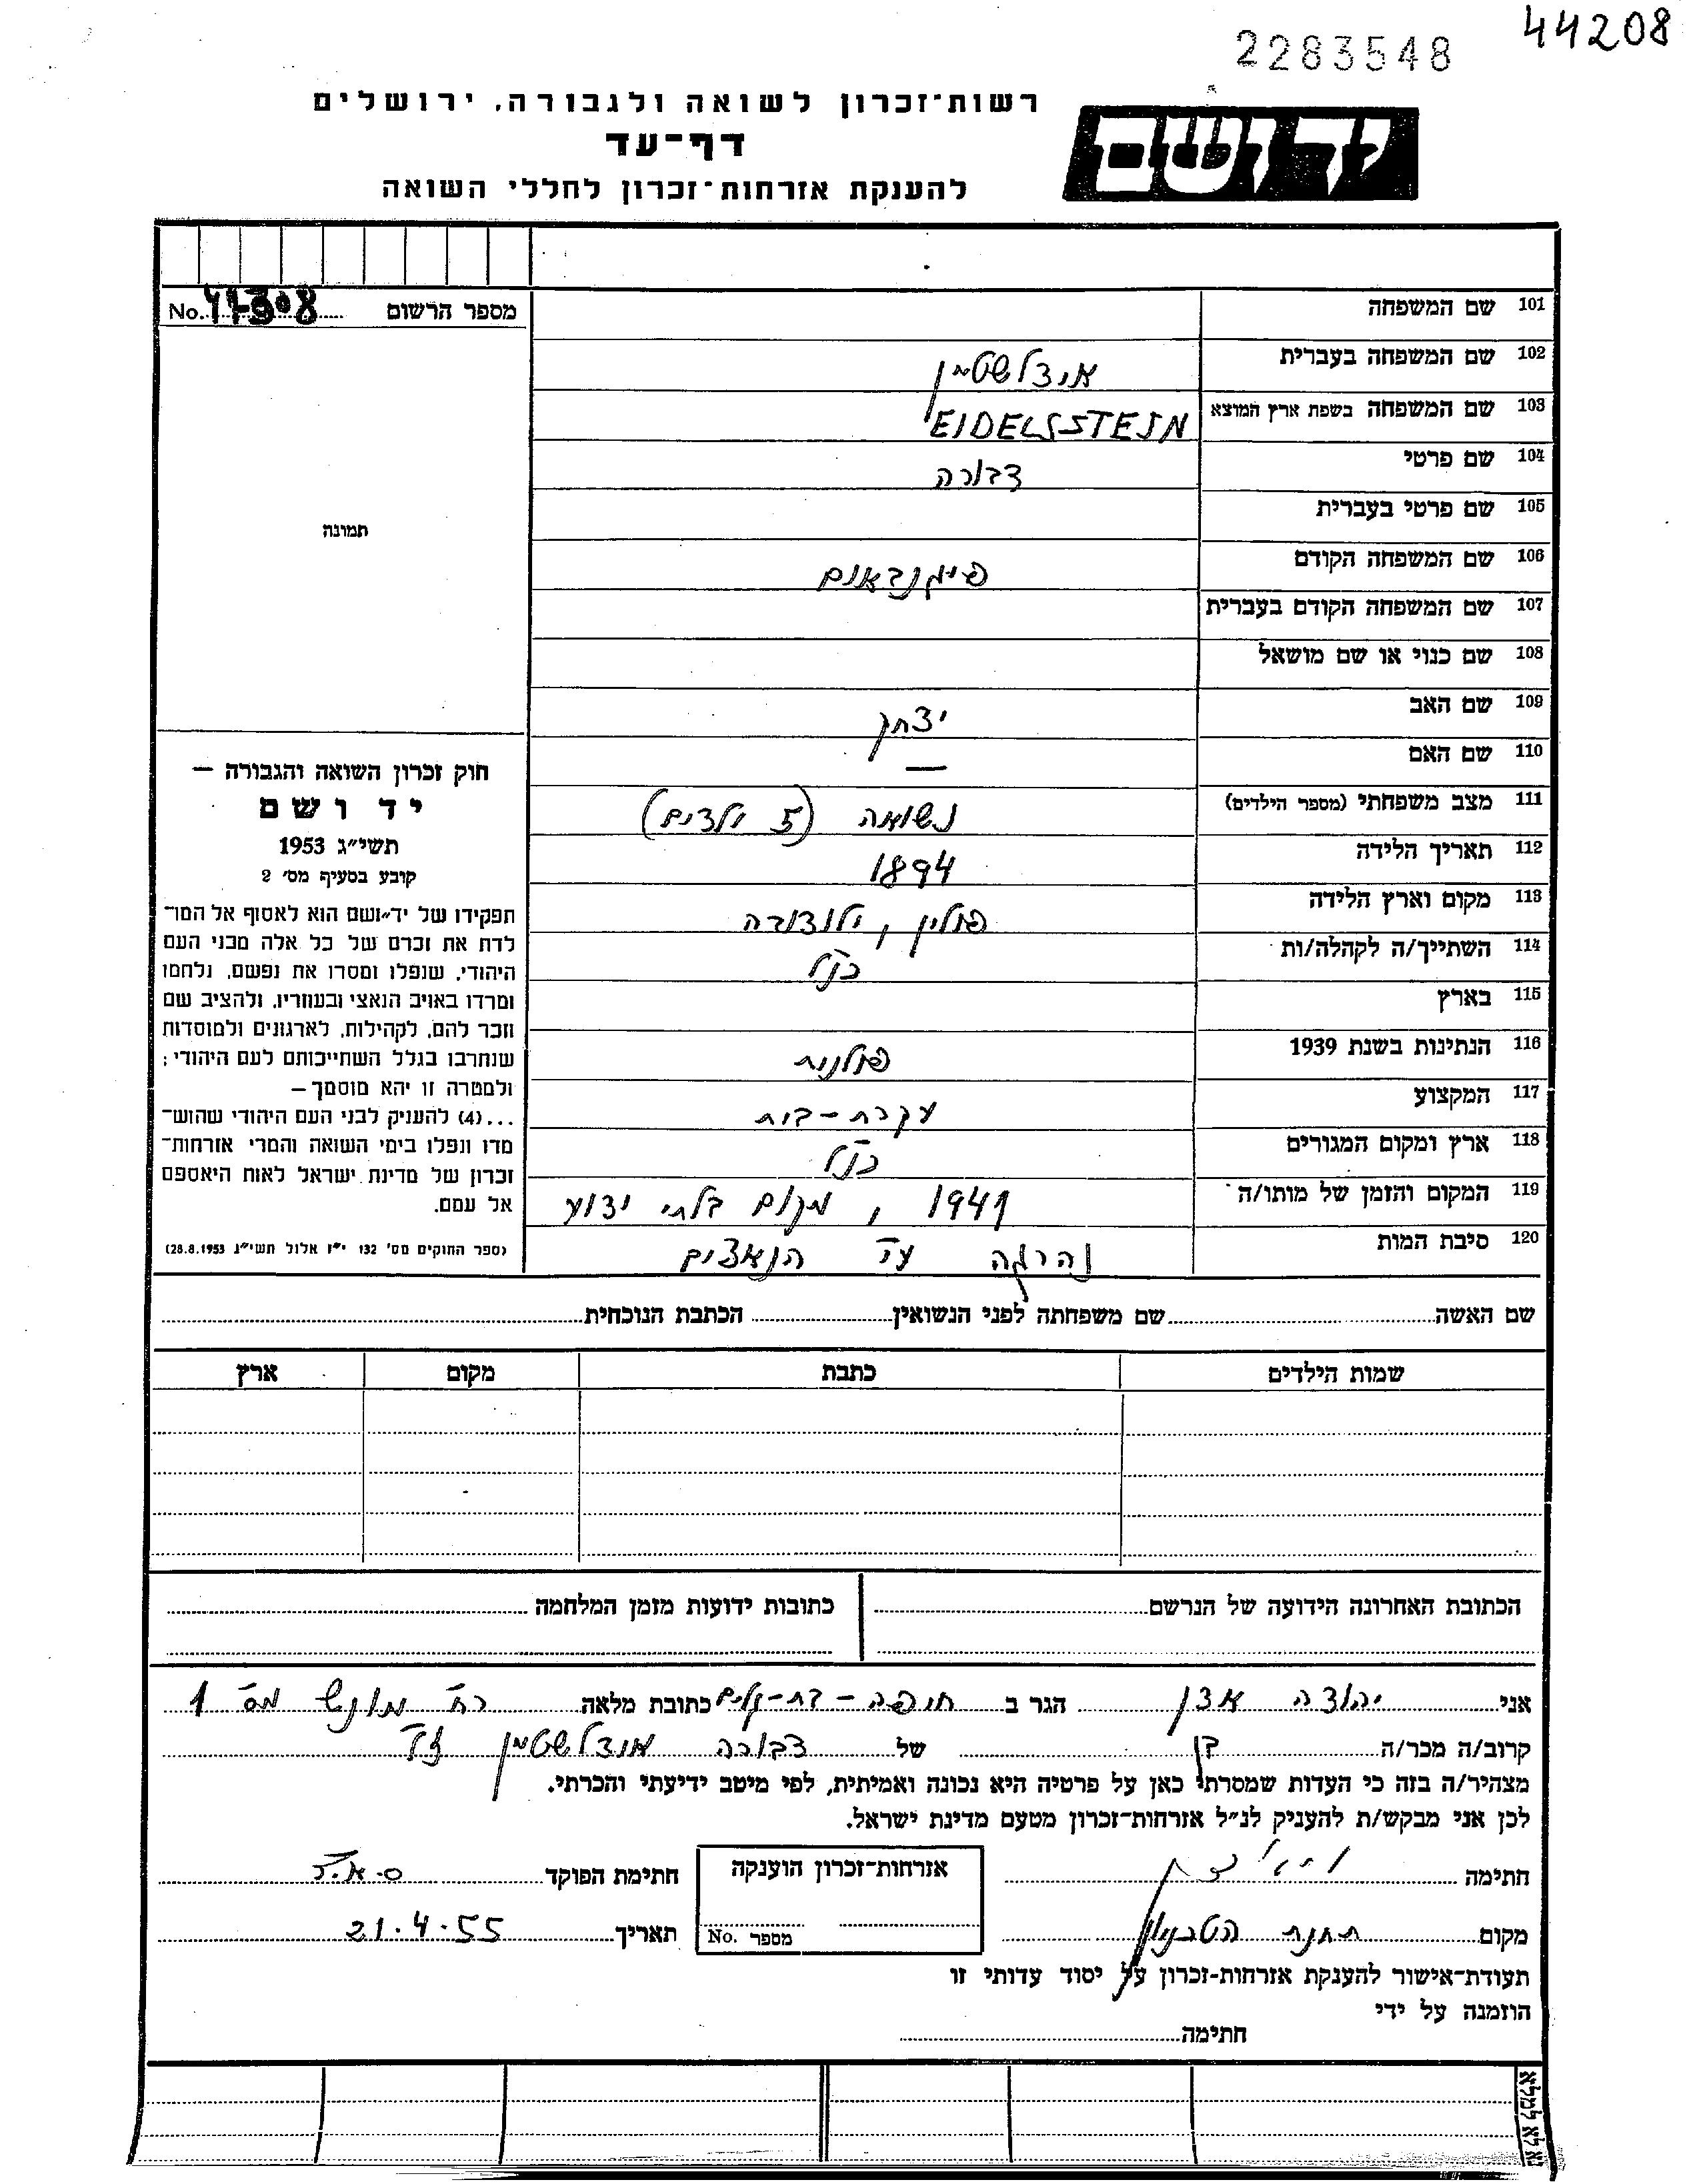 44208
2283548
ידושם
רשות־זכרון לשואה ולגבורה, ירושלים
דף־עד
להענקת אזרחות־זכרון לחללי השואה
מספר הרשום No.
תמונה
101 שם המשפחה
102 שם המשפחה בעברית אידלשטיין
103 שם המשפחה בשפת ארץ המוצא EIDELSSTEJN
104 שם פרטי דבורה
105 שם פרטי בעברית
106 שם המשפחה הקודם פייגנבאום
107 שם המשפחה הקודם בעברית
108 שם כנוי או שם מושאל
109 שם האב יצחק
110 שם האם —
111 מצב משפחתי (מספר הילדים) נשואה (5 ילדים)
112 תאריך הלידה 1894
113 מקום וארץ הלידה פולין,
114 השתייך/ה לקהלה/ות כנ"ל
115 בארץ
116 הנתינות בשנת 1939 פולנית
117 המקצוע עקרת-בית
118 ארץ ומקום המגורים כנ"ל
119 המקום והזמן של מותו/ה 1941, מקום בלתי ידוע
120 סיבת המות נהרגה ע"י הנאצים
חוק זכרון השואה והגבורה —
יד ושם
תשי״ג 1953
קובע בסעיף מס׳ 2
תפקידו של יד־ושם הוא לאסוף אל המו־
לדת את זכרם של כל אלה מבני העם
היהודי, שנפלו ומסרו את נפשם, נלחמו
ומרדו באויב הנאצי ובעוזריו, ולהציב שם
וזכר להם, לקהילות, לארגונים ולמוסדות
שנחרבו בגלל השתייכותם לעם היהודי;
ולמטרה זו יהא מוסמך —
...(4) להעניק לבני העם היהודי שהוש־
מדו ונפלו בימי השואה והמרי אזרחות־
זכרון של מדינת ישראל לאות היאספם
אל עמם.
(ספר החוקים מס׳ 132 י״ז אלול תשי״ג 28.8.1953)
שם האשה שם משפחתה לפני הנשואין הכתבת הנוכחית
שמות הילדים כתבת מקום ארץ
הכתובת האחרונה הידועה של הנרשם כתובות ידועות מזמן המלחמה
אני יהודה אדן הגר ב חיפה - בת-גלים כתובת מלאה רח' מס' 1
קרוב/ה מכר/ה בן של דבורה אידלשטיין ז"ל
מצהיר/ה בזה כי העדות שמסרתי כאן על פרטיה היא נכונה ואמיתית, לפי מיטב ידיעתי והכרתי.
לכן אני מבקש/ת להעניק לנ״ל אזרחות־זכרון מטעם מדינת ישראל.
חתימה אזרחות־זכרון הוענקה חתימת הפוקד
מקום תחנת מספר No. תאריך 21.4.55
תעודת־אישור להענקת אזרחות-זכרון על יסוד עדותי זו
הוזמנה על ידי
חתימה
נא לא למלא